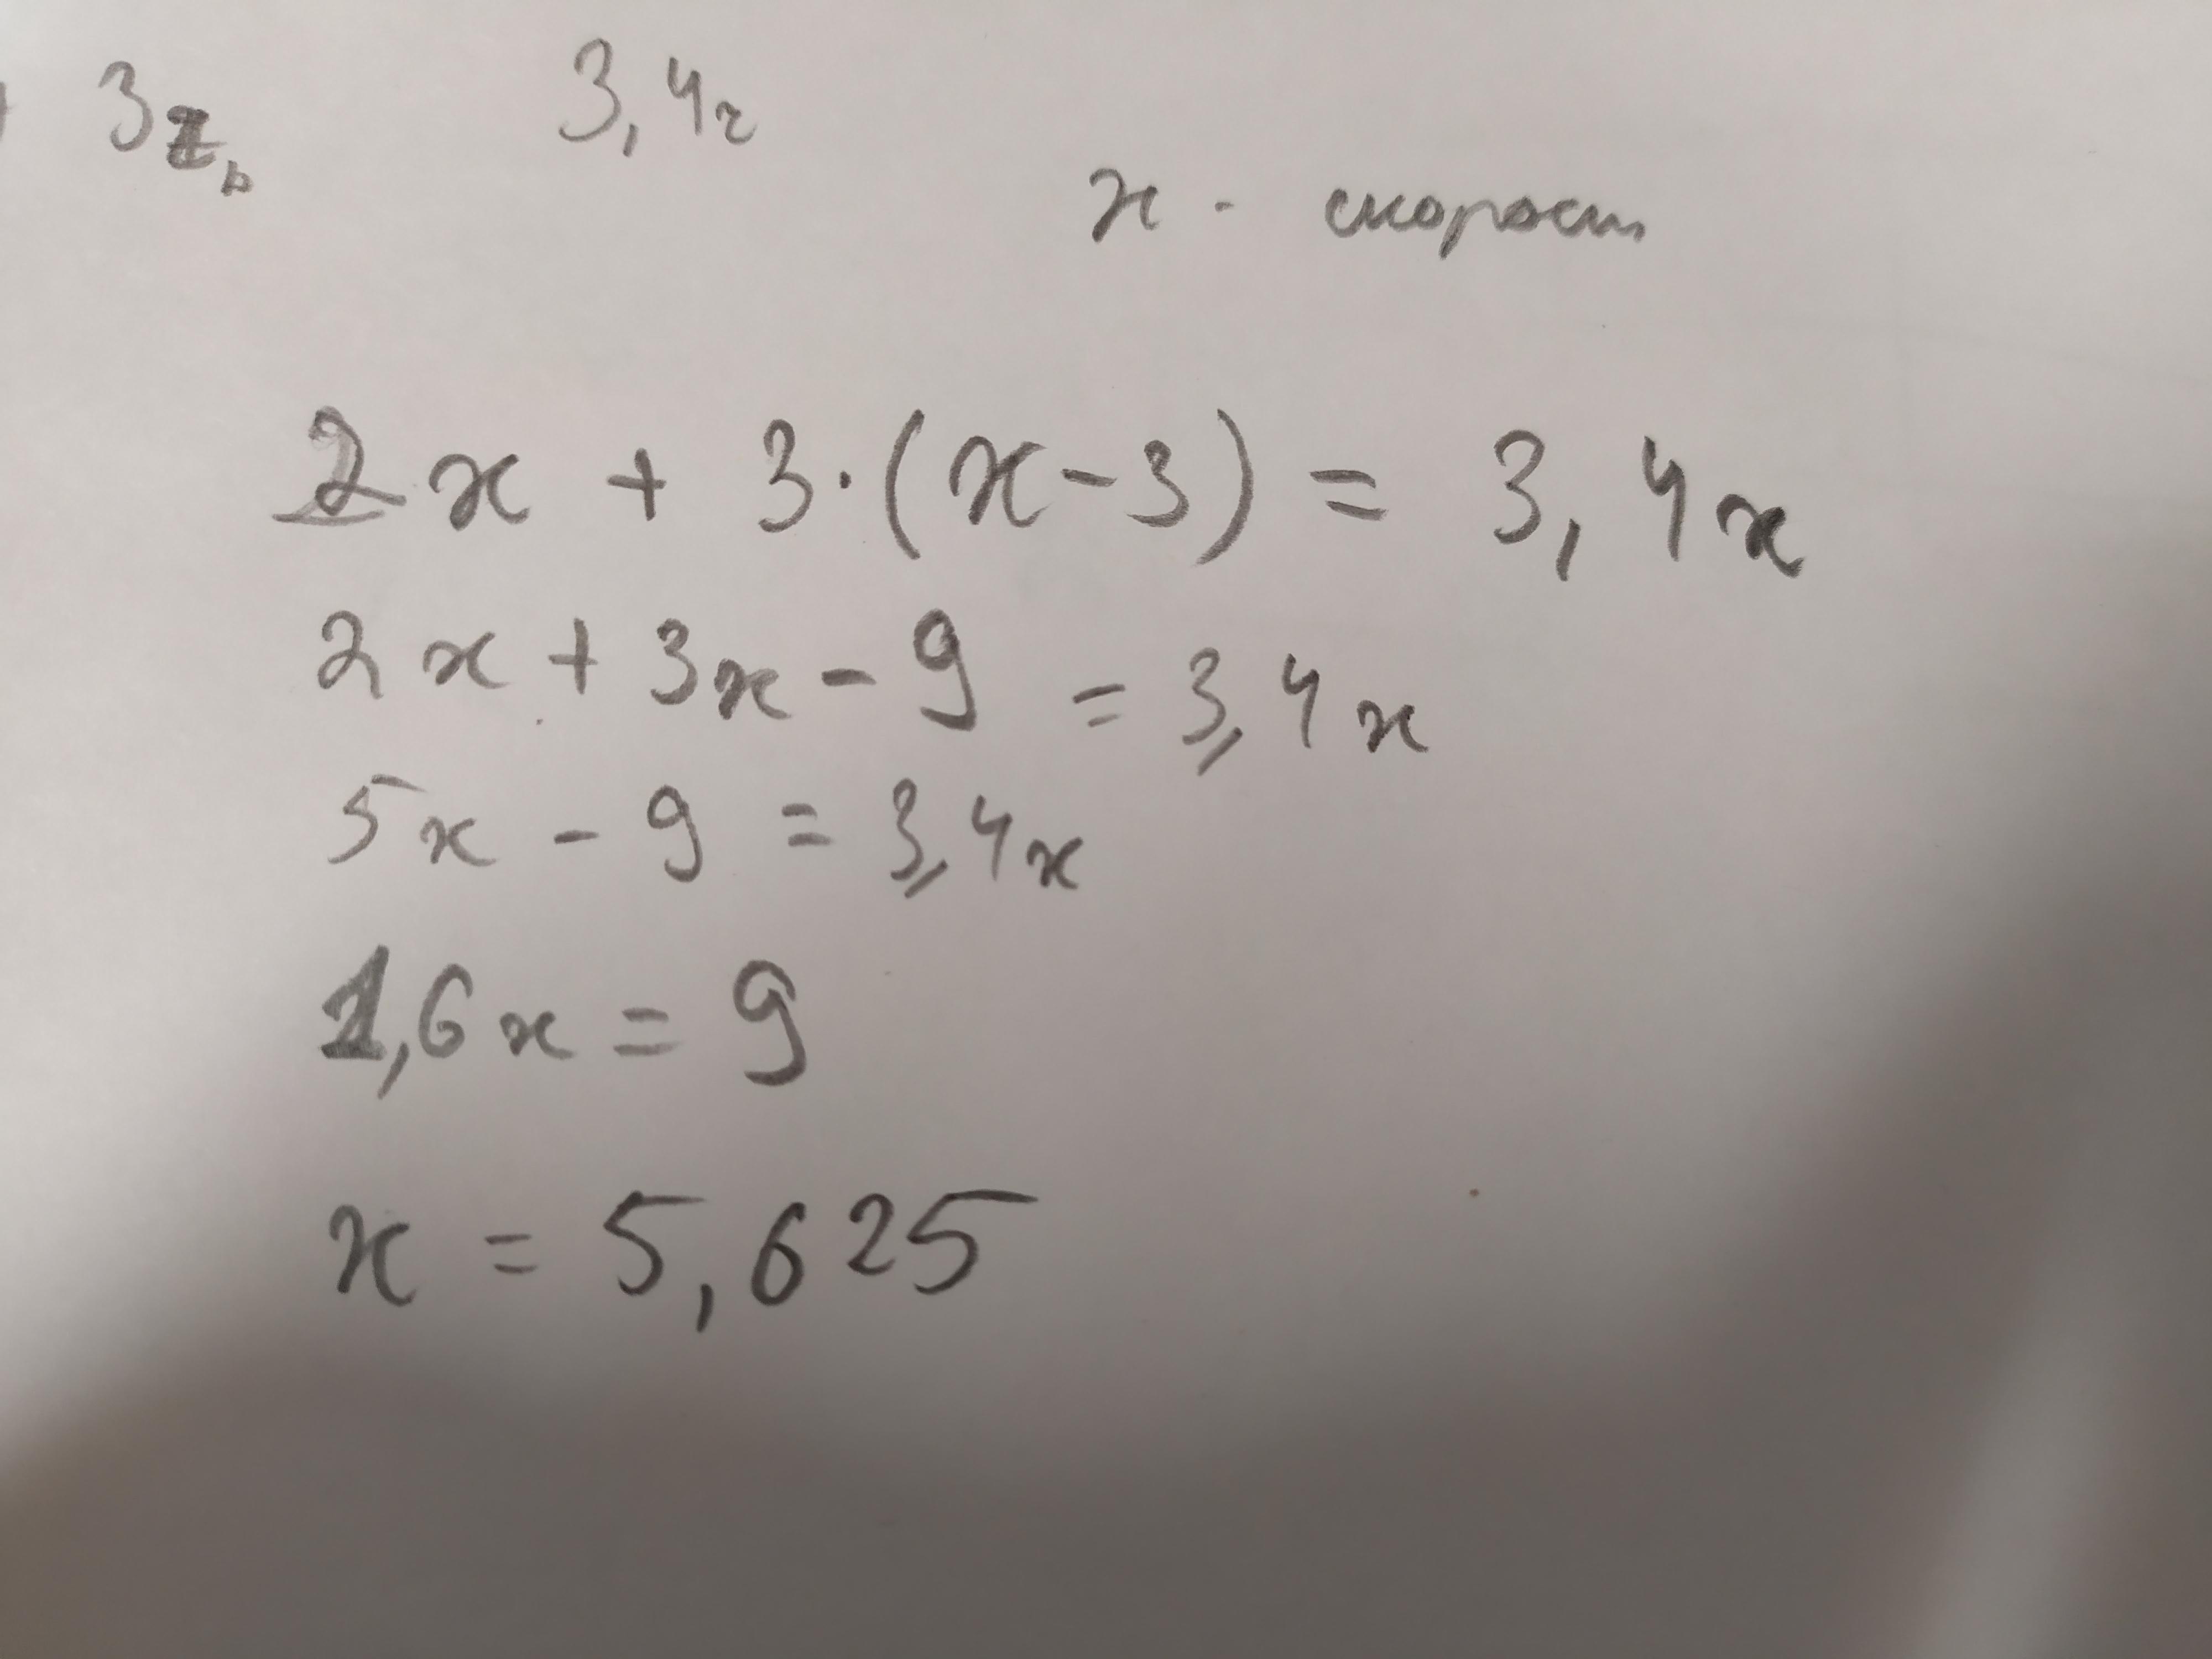 3,4
x - скорост
2x + 3·(x-3) = 3,4x
2x + 3x - 9 = 3,4x
5x - 9 = 3,4x
1,6x = 9
x = 5,625